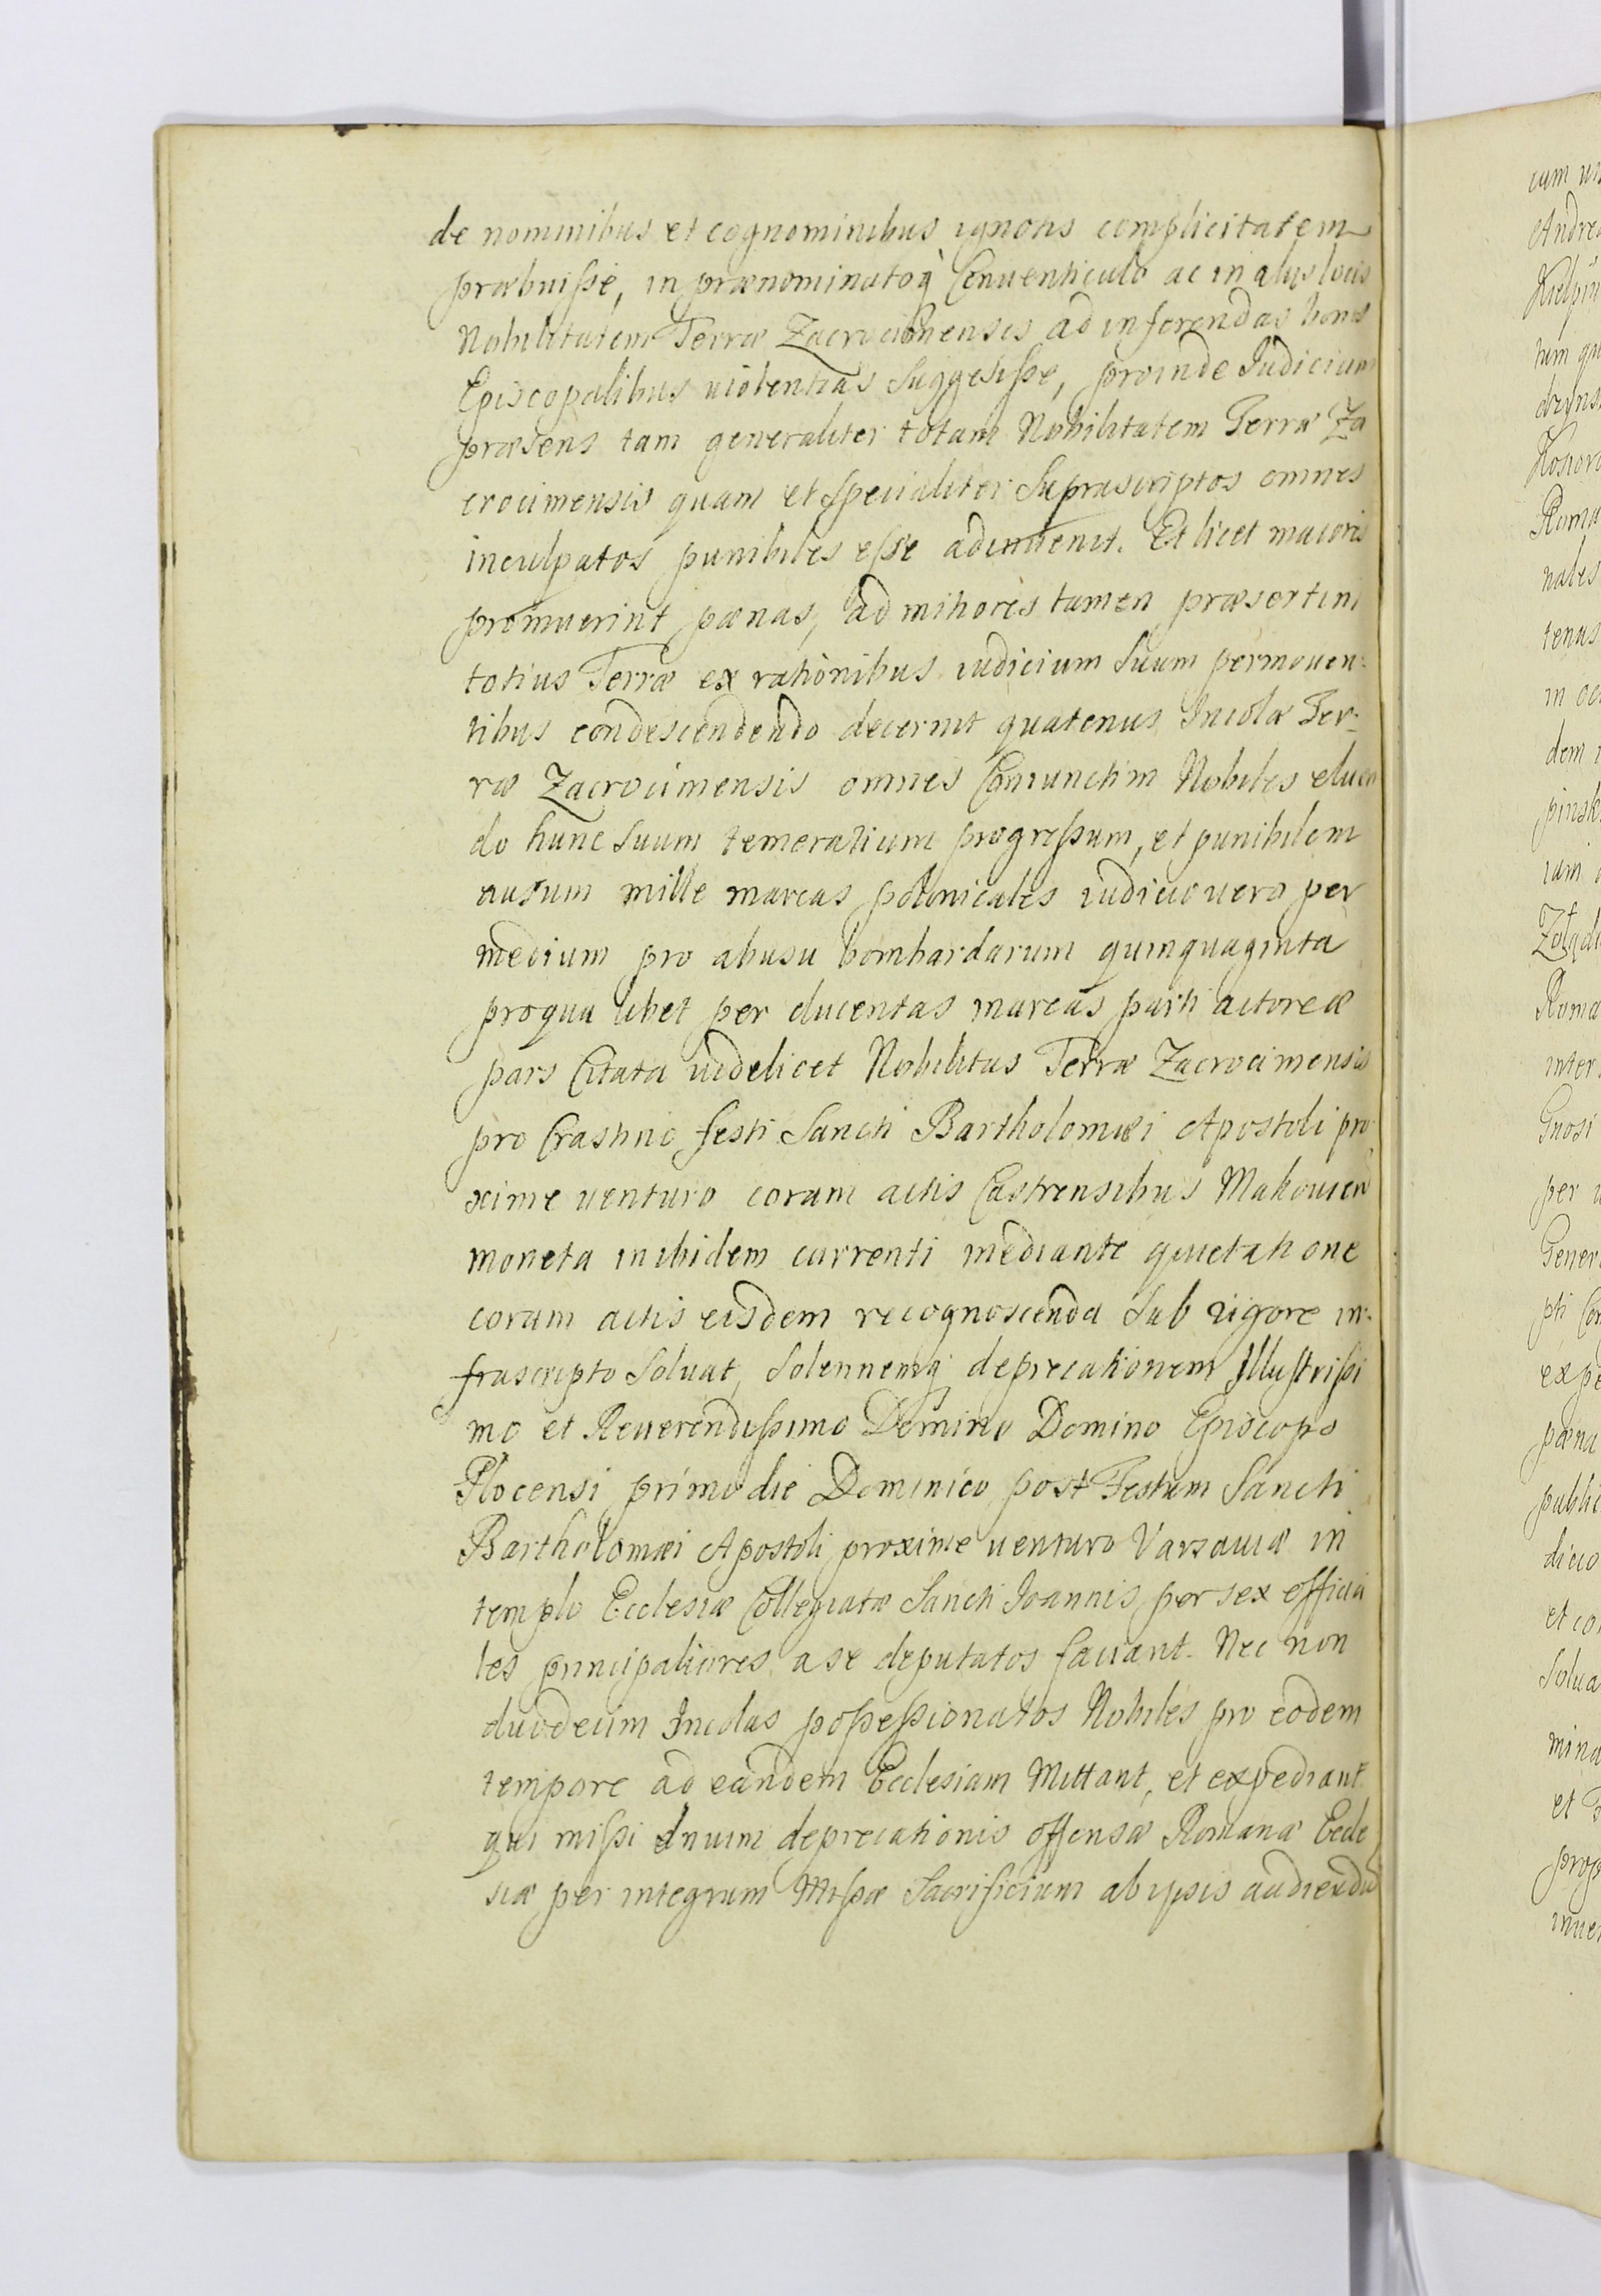 de nominibus et cognominibus ignotis complicitatem
præbuisse, in prænominatoq̀ Conuenticulo ac in alys locis
Nobilitatem Terræ Zacrocimensis ad inferendas bonis
Episcopalibus uiolentias suggesisse, proinde Iudicium
præsens tam generaliter totam Nobilitatem Terræ Za
crocimensis quam et specialiter suprascriptos omnes
inculpatos punibiles esse adinuenit. Et licet maioris
promuerint pænas, ad minoris tamen præsertim
totius Terræ ex rationibus iudicium suum permouen:
tibus condescendendo decernit quatenus Incolæ Ter:
ræ Zacrocimensis omnes Coniunctim Nobiles eluen
do hunc suum temerarium progressum, et punibilem
ausum mille marcas polonicales iudicio uero per
medium pro abusu bombardarum quinquaginta
pro qua libet per ducentas marcas parti actoreæ
pars Citata uidelicet Nobilitas Terræ Zacrocimensis
pro Crastino festi Sancti Bartholomæi Apostoli pro
xime venturo coram actis Castrensibus Makouien
moneta inibidem currenti mediante quietatione
coram actis eisdem recognoscenda sub rigore in:
frascripto soluat, solennemq; deprecationem Illustrissi
mo et Reuerendissimo Domino Domino Episcopo
Plocensi primo die Dominico post Festum Sancti
Bartholomæi Apostoli proxime uenturo Varsauiæ in
templo Ecclesiæ Collegiatæ Sancti Ioannis per sex officia
les principaliores a se deputatos faciant. Nec non
duodecim Incolas possessionatos Nobiles pro eodem
tempore ad eandem Ecclesiam Mittant, et expediant
qui missi deprecationis offensæ Romanæ Eccle
siæ per integrum Missæ Sacrificium ab ipsis audiendu